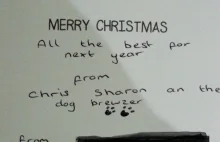 MERRY CHRISTMAS
All the best for
next year
from
Chris Sharon an the
dog brewzer
from